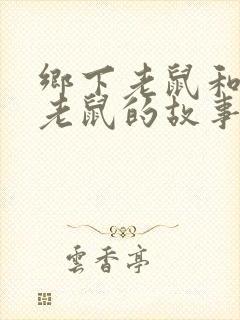 鄉下老鼠和
老鼠的故事
雲香亭